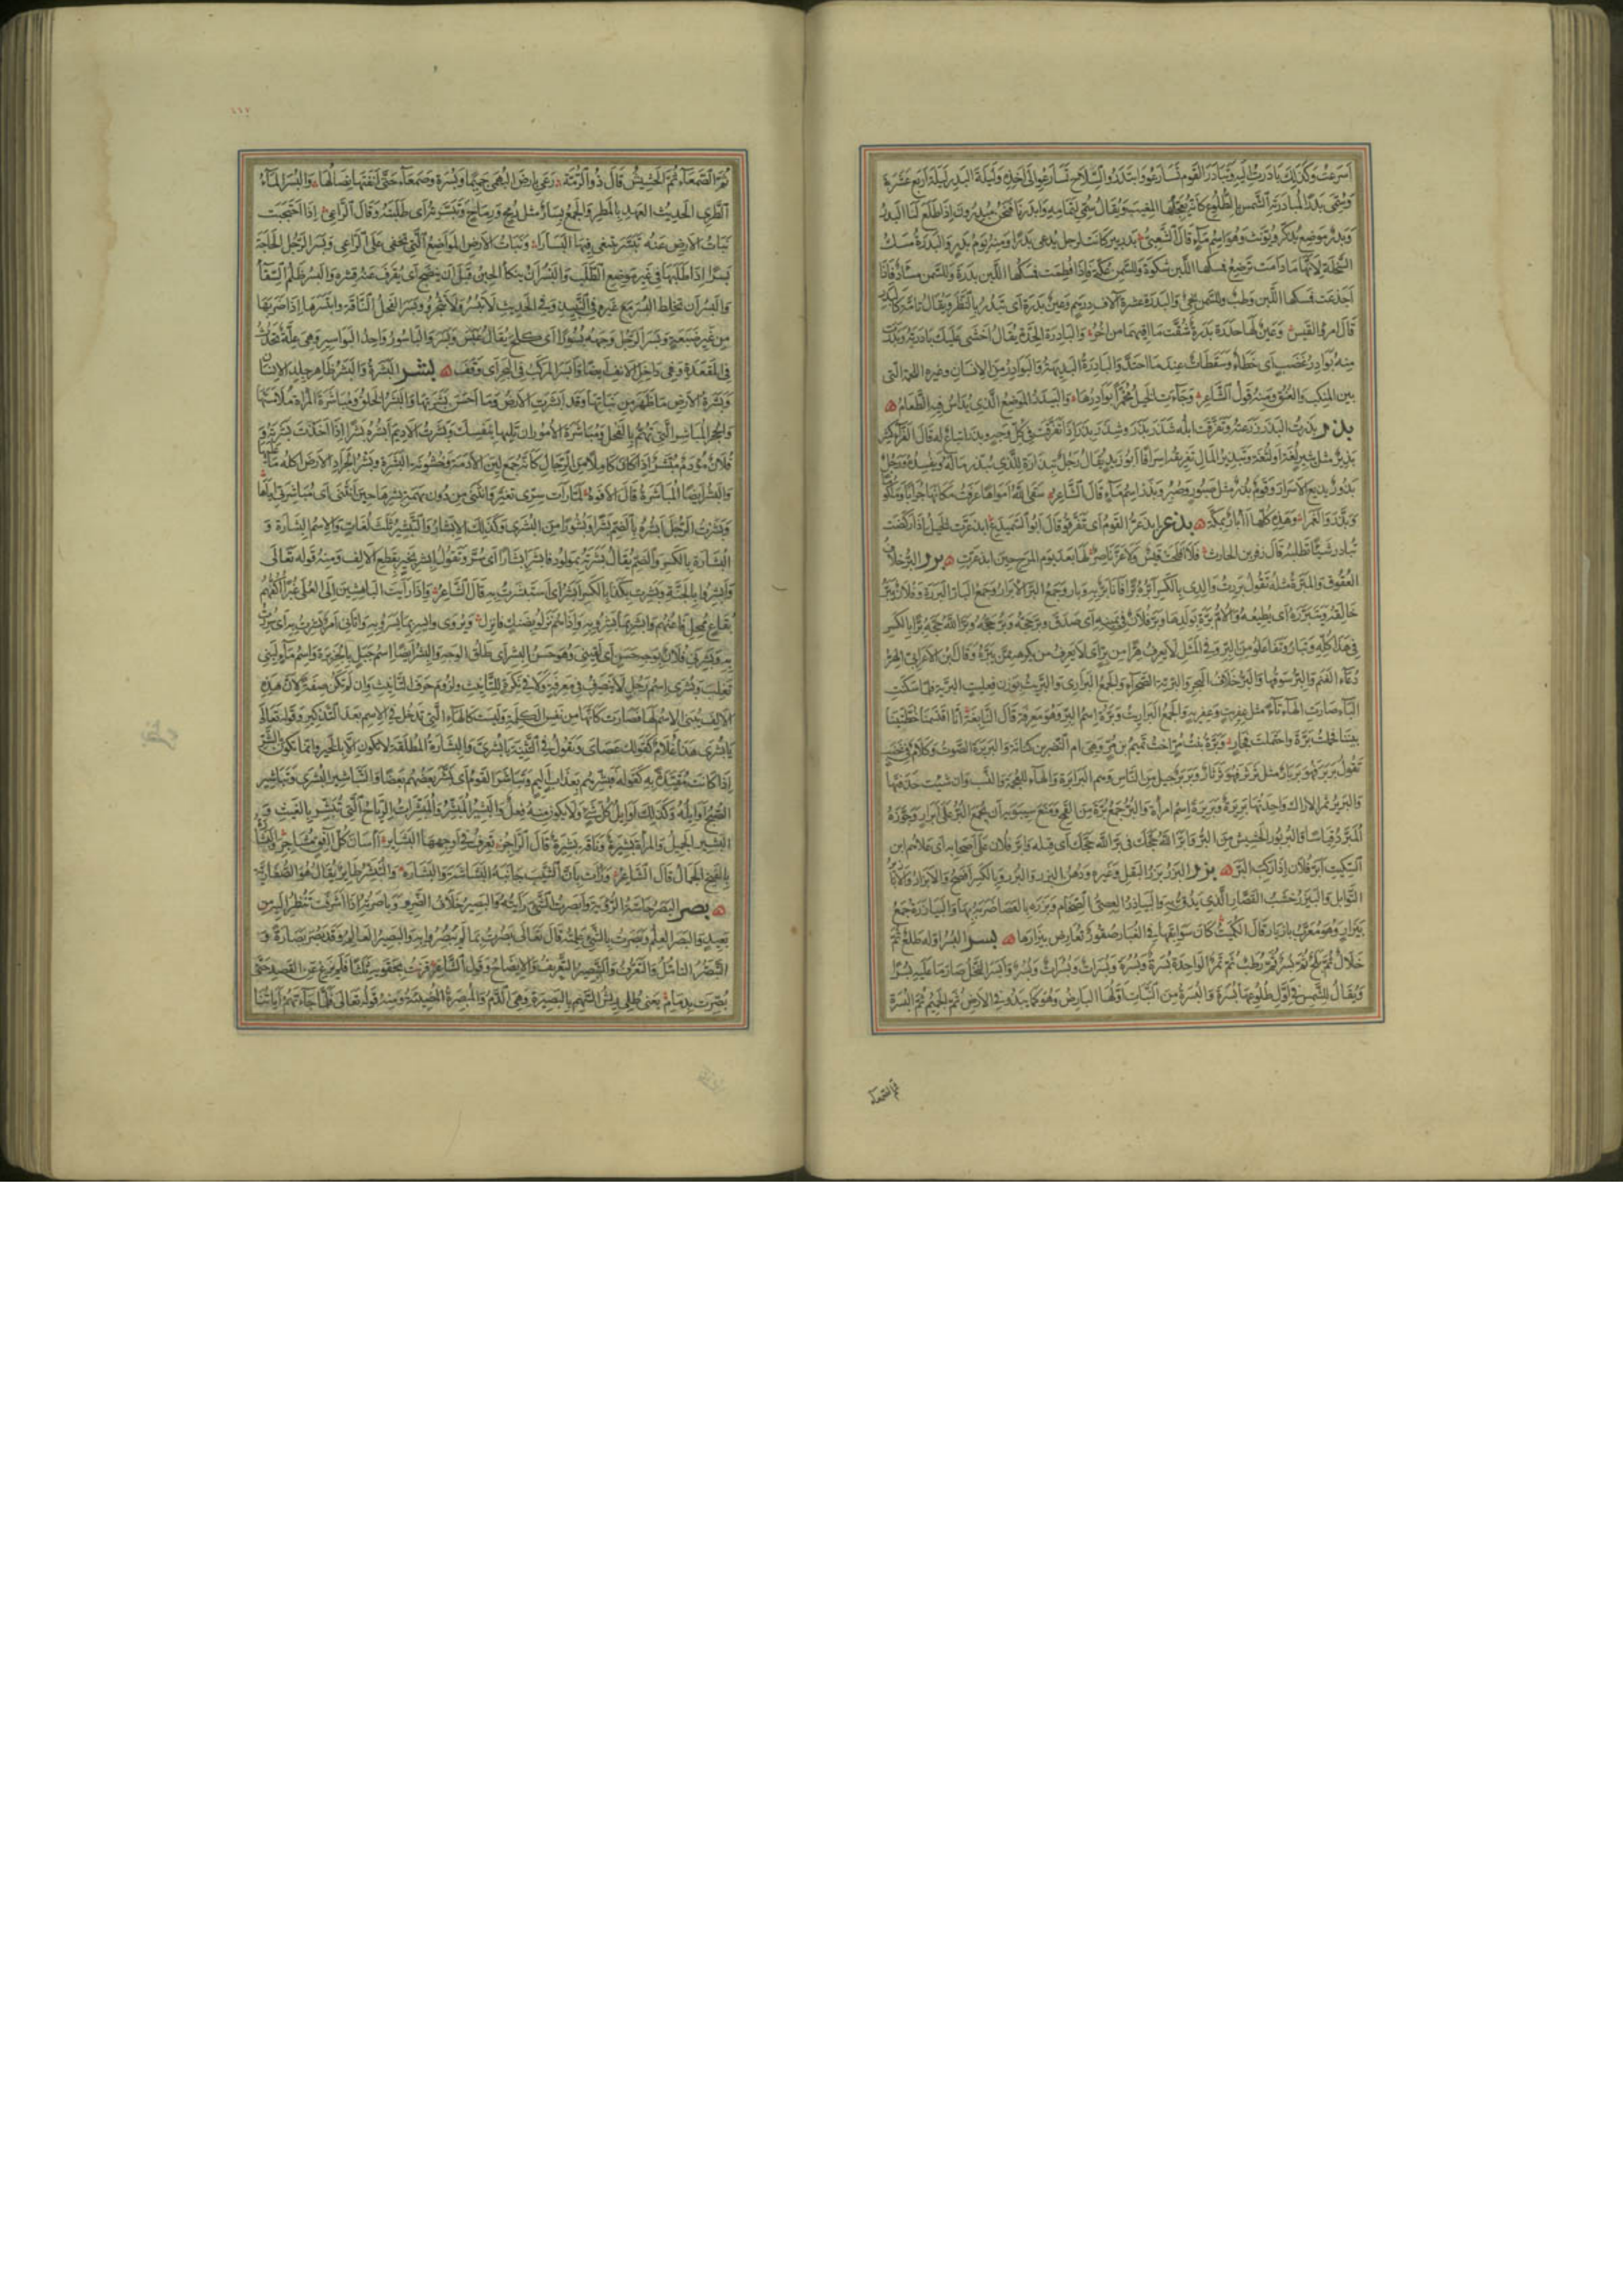 اسرعت وكذلك بادرت اليه وتبادر القوم تسارعوا وابتدروا السلاح تسارعوا الى اخذه وليلة البدر ليلة اربع عشرة
وسمى بدرا لمبادرته الشمس بالطلوع كانه يعجلها المغيب ويقال سمى لتمامه وابدرنا فنحن مبدرون اذا طلع لنا البدر
وبدر موضع يذكر ويؤنث وهو اسم ماء قال الشعبى بدر بير كانت لرجل يدعى بدرا ومنه يوم بدر والبدرة مسك
السخلة لانها ما دامت ترضع فمسكها اللبن شكوة وللسمن عكة فاذا فطمت فمسكها اللبن بدرة وللسمن مساد فاذا
اجذعت فمسكها اللبن وطب وللسمن نحى والبدرة عشرة آلاف درهم وعين بدرة اى تبدر بالنظر ويقال تامة كالبدر
قال امرؤ القيس وعين لها حدرة بدرة شقت مآقيهما من اخر والبادرة الحدة يقال اخشى عليك بادرته وبدرت
منه بوادر غضب اى خطأ وسقطات عند ما احتد والبادرة البديهة والبوادر من الانسان وغيره اللحمة التى
بين المنكب والعنق ومنه قول الشاعر وجاءت الخيل محمرا بوادرها والبيدر الموضع الذى يداس فيه الطعام
بذر بذرت البذر زرعته وتفرقت ابله شذر بذر وشذر بذر اذا تفرقت فى كل وجه وبذر اتباع له قال الفراء كثير
بذير مثل بثير لغة او لثغة وتبذير المال تفريقه اسرافا ابو زيد يقال رجل تبذارة للذى يبذر ماله ويفسده ورجل
بذور يذيع الاسرار وقوم بذر مثل صبور وصبر وبذر اسم ماء قال الشاعر سقى الله امواها عرفت مكانها جرابا وملكوما
وبذر والغمرا وهذه كلها آبار بمكة بذعر ابذعر القوم اى تفرقوا قال ابو السميدع ابذعرت الخيل اذا ركضت
تبادر شيئا تطلبه قال زفر بن الحارث فلا افلحت قيس ولا عز ناصر لها بعد يوم المرج حين ابذعرت برر البر خلاف
العقوق والمبرة مثله تقول بررت والدى بالكسر ابره برا فانا بر به وبار وجمع البر الابرار وجمع البار البررة وفلان يبر
خالقه ويتبرره اى يطيعه والام برة بولدها وبر فلان فى يمينه اى صدق وبر حجه وبر حجه وبر الله حجه برا بالكسر
فى هذا كله وتباروا تفاعلوا من البر وفى المثل لا يعرف هرا من بر اى لا يعرف من يكرهه ممن يبره وقال ابن الاعرابى الهر
دعاء الغنم والبر سوقها والبر خلاف البحر والبرية الصحراء والجمع البرارى والبريت بوزن فعليت البرية فلما سكنت
الياء صارت الهاء تاء مثل عفريت وعفرية والجمع البراريت وبرة اسم البر وهو معرفة قال النابغة انا اقتسمنا خطتينا
بيننا فحملت برة واحتملت فجار وبرة بنت مر اخت تميم بن مر وهى ام النضر بن كنانة والبربرة الصوت وكلام فى غضب
تقول بربر فهو بربار مثل ثرثر فهو ثرثار وبربر جيل من الناس وهم البرابرة والهاء للعجمة والنسب وان شئت حذفتها
والبرير ثمر الاراك واحدتها بريرة وبريرة اسم امرأة والبر جمع برة من القمح ومنع سيبويه ان يجمع البر على ابرار وجوزه
المبرد قياسا والبربور الجشيش من البر وابر الله حجك لغة فى بر الله حجك اى قبله وابر فلان على اصحابه اى علاهم ابن
السكيت ابر فلان اذا ركب البر بزر البزر بزر البقل وغيره ودهن البزر والبزر وبالكسر افصح والابزار والابازير
التوابل والبيزر خشب القصار الذى يدق به والبيازر العصى الضخام وبزره بالعصا ضربه بها والبيازرة جمع
بيزار وهو معرب بازيار قال الكميت كان سوابقها فى الغبار صقور تعارض بيزارها بسر البسر اوله طلع ثم
خلال ثم بلح ثم بسر ثم رطب ثم تمر الواحدة بسرة وبسرة وبسرات وبسرات وبسر وابسر النخل صار ما عليه بسرا
ويقال للشمس فى اول طلوعها بسرة والبسرة من النبات اولها البارض وهو كما يبدو فى الارض ثم الجميم ثم البسرة
ثم الصمعاء
ثم الصمعاء ثم الحشيش قال ذو الرمة رعى بارض البهمى جميما وبسرة وصمعاء حتى آنفتها نصالها والبسر الماء
الطرى الحديث العهد بالمطر والجمع بسار مثل رمح ورماح وتبسرته اى طلبته وقال الراعى اذا احتجبت
نبات الارض عنه تبسر يبتغى فيها البسارا وبنات الارض المواضع التى تخفى على الراعى وبسر الرجل الحاجة
بسرا اذا طلبها فى غير موضع الطلب والبسر ان ينكأ الحبن قبل ان ينضج اى يقرف عنه قشره والبسر ظلم السقاء
والبسر ان تخلط البسر مع غيره فى النبيذ وفى الحديث لا تبسروا ولا تثجروا وبسر الفحل الناقة وابتسرها اذا ضربها
من غير ضبعة وبسر الرجل وجهه بسورا اى كلح يقال عبس وبسر والباسور واحد البواسير وهى علة تحدث
فى المقعدة وفى داخل الانف ايضا وابسر المركب فى البحر اى وقف بشر البشرة والبشر ظاهر جلد الانسان
وبشرة الارض ما ظهر من نباتها وقد ابشرت الارض وما احسن بشرتها والبشر الخلق ومباشرة المرأة ملامستها
والحجر المباشر التى تهم بالفحل ومباشرة الامور ان تليها بنفسك وبشرت الاديم ابشره بشرا اذا اخذت بشرته
فلان مؤدم مبشر اذا كان كاملا من الرجال كانه جمع لين الادمة وخشونة البشرة وبشر الجراد الارض اكله ما عليها
والبشر ايضا المباشرة قال الافوه لما رأت شيبى تغير وانثنى من دون نهمة بشرها حين انثنى اى مباشرتى اياها
وبشرت الرجل ابشره بالضم بشرا وبشورا من البشرى وكذلك الابشار والتبشير ثلث لغات والاسم البشارة و
البشارة بالكسر والضم يقال بشرته بمولود فابشر ابشارا اى سر وتقول ابشر بخير بقطع الالف ومنه قوله تعالى
وابشروا بالجنة وبشرت بكذا بالكسر ابشر اى استبشرت به قال الشاعر واذا رأيت الباهشين الى العلى غبرا اكفهم
بقاع ممحل فاعنهم وابشر بما بشروا به واذا هم نزلوا بضنك فانزل ويروى وايسر بما يسروا به واتانى امر بشرت به اى سررت
به وبشرنى فلان بوجه حسن اى لقينى وهو حسن البشر اى طلق الوجه والبشر ايضا اسم جبل بالجزيرة واسم ماء لبنى
تغلب وبشرى اسم رجل لا ينصرف فى معرفة ولا فى نكرة للتأنيث ولزوم حرف التأنيث وان لم تكن صفة لان هذه
الالف يبنى الاسم لها فصارت كانها من نفس الكلمة وليست كالهاء التى تدخل فى الاسم بعد التذكير وقوله تعالى
يا بشرى هذا غلام كقولك عصاى وتقول فى التثنية يا بشريى والبشارة المطلقة لا تكون الا بالخير وانما تكون بالشر
اذا كانت مقيدة به كقوله فبشرهم بعذاب اليم وتباشر القوم اى بشر بعضهم بعضا والتباشير البشرى وتباشير
الصبح اوايله وكذلك اوايل كل شىء ولا يكون منه فعل والبشير المبشر والمبشرات الرياح التى تبشر بالغيث و
البشير الجميل والمرأة بشيرة وناقة بشيرة قال الراجز تعرف فى اوجهها البشاير آسان كل آفق مشاجر والبشارة
بالفتح الجمال قال الشاعر ورأت بان الشيب جانبه البشاشة والبشارة والتبشر طاير يقال هو الصفارية
بصر البصر حاسة الرؤية وابصرت الشىء رأيته والبصير خلاف الضرير وباصرته اذا اشرفت تنظر اليه من
بعيد والبصر العلم وبصرت بالشىء علمته قال تعالى بصرت بما لم يبصروا به والبصير العالم وقد بصر بصارة و
التبصر التأمل والتعرف والتبصير التعريف والايضاح وقول الشاعر قرنت بحقويه ثلثا فلم يزغ عن القصد حتى
بصرت بدمام يعنى طلى ريش السهم بالبصيرة وهى الدم والمبصرة المضيئة ومنه قوله تعالى فلما جاءتهم آياتنا